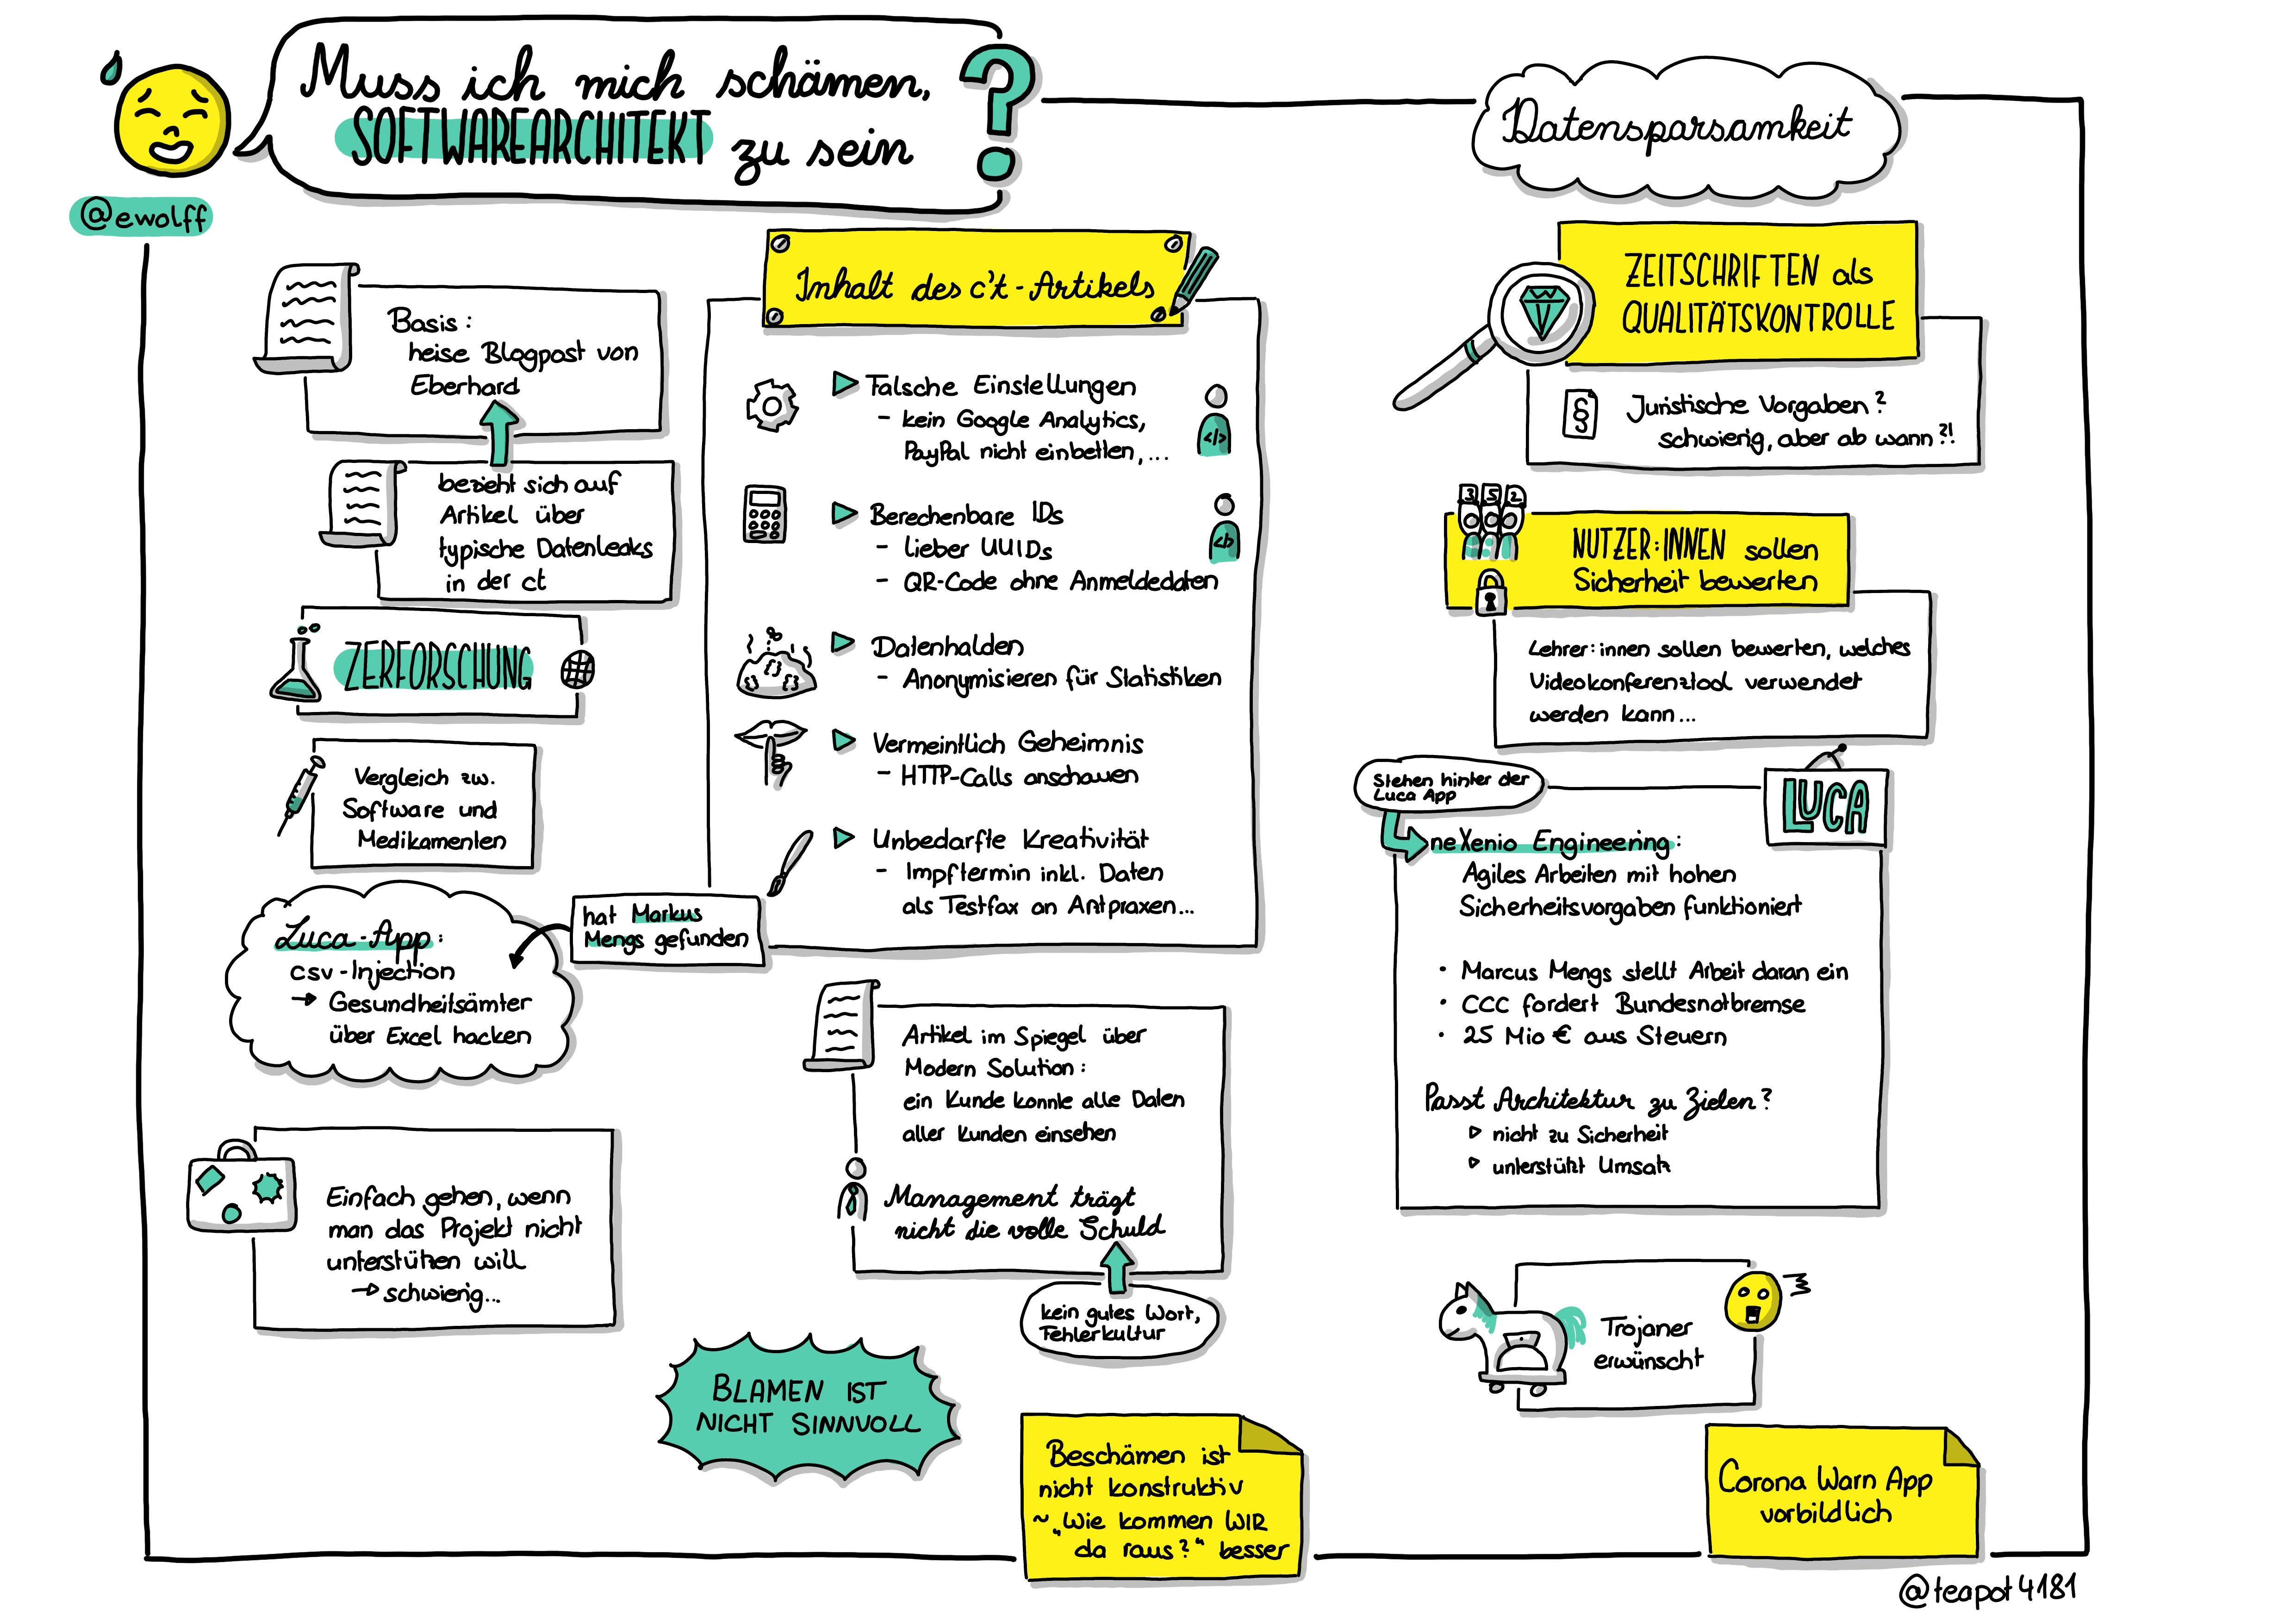 Muss ich mich schämen,
SOFTWAREARCHITEKT zu sein
?
@ewolff
Basis:
heise Blogpost von
Eberhard
bezieht sich auf
Artikel über
typische Datenleaks
in der ct
ZERFORSCHUNG
Vergleich zw.
Software und
Medikamenten
Luca-App:
csv-Injection
→ Gesundheitsämter
über Excel hacken
hat Markus
Mengs gefunden
Einfach gehen, wenn
man das Projekt nicht
unterstützen will
→ schwierig...
Inhalt des c't-Artikels
Falsche Einstellungen
- kein Google Analytics,
PayPal nicht einbetten,...
</>
Berechenbare IDs
- lieber UUIDs
- QR-Code ohne Anmeldedaten
</>
Datenhalden
- Anonymisieren für Statistiken
Vermeintlich Geheimnis
- HTTP-Calls anschauen
Unbedarfte Kreativität
- Impftermin inkl. Daten
als Testfax an Arztpraxen...
Artikel im Spiegel über
Modern Solution:
ein Kunde konnte alle Daten
aller Kunden einsehen
Management trägt
nicht die volle Schuld
kein gutes Wort,
Fehlerkultur
BLAMEN IST
NICHT SINNVOLL
Beschämen ist
nicht konstruktiv
~ „Wie kommen WIR
da raus?“ besser
Datensparsamkeit
ZEITSCHRIFTEN als
QUALITÄTSKONTROLLE
§
Juristische Vorgaben?
schwierig, aber ab wann?!
3 5 2
NUTZER:INNEN sollen
Sicherheit bewerten
Lehrer:innen sollen bewerten, welches
Videokonferenztool verwendet
werden kann...
Stehen hinter der
Luca App
LUCA
neXenio Engineering:
Agiles Arbeiten mit hohen
Sicherheitsvorgaben funktioniert
• Marcus Mengs stellt Arbeit daran ein
• CCC fordert Bundesnotbremse
• 25 Mio € aus Steuern
Passt Architektur zu Zielen?
▷ nicht zu Sicherheit
▷ unterstützt Umsatz
Trojaner
erwünscht
Corona Warn App
vorbildlich
@teapot4181